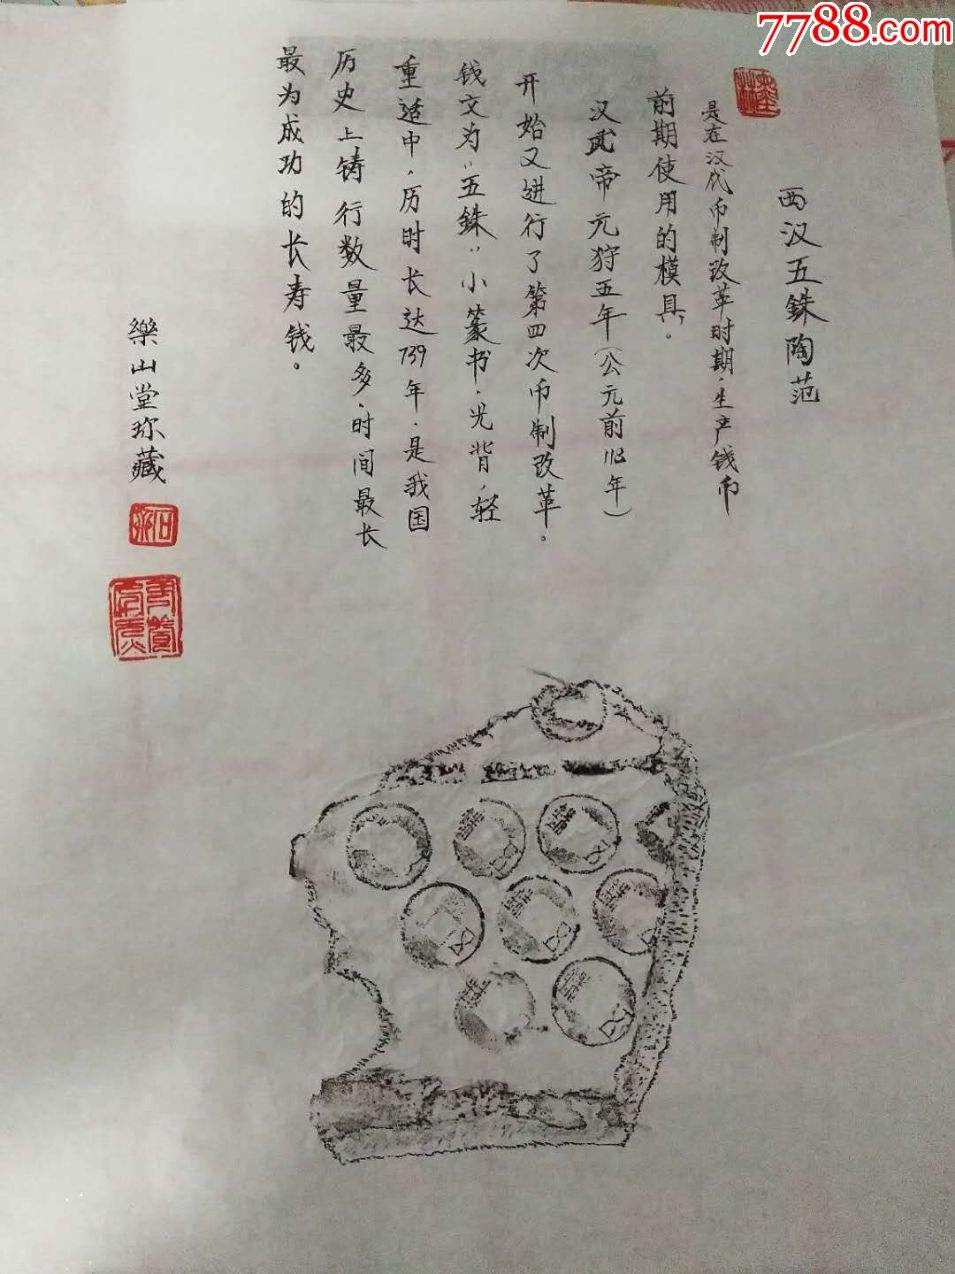 7788.com
西汉五銖陶范
是在汉代币制改革时期.生产钱币
前期使用的模具。
汉武帝元狩五年(公元前118年)
开始又进行了第四次币制改革。
钱文为"五銖"小篆书.光背,轻
重适中,历时长达739年.是我国
历史上铸行数量最多.时间最长
最为成功的长寿钱。
樂山堂珎藏